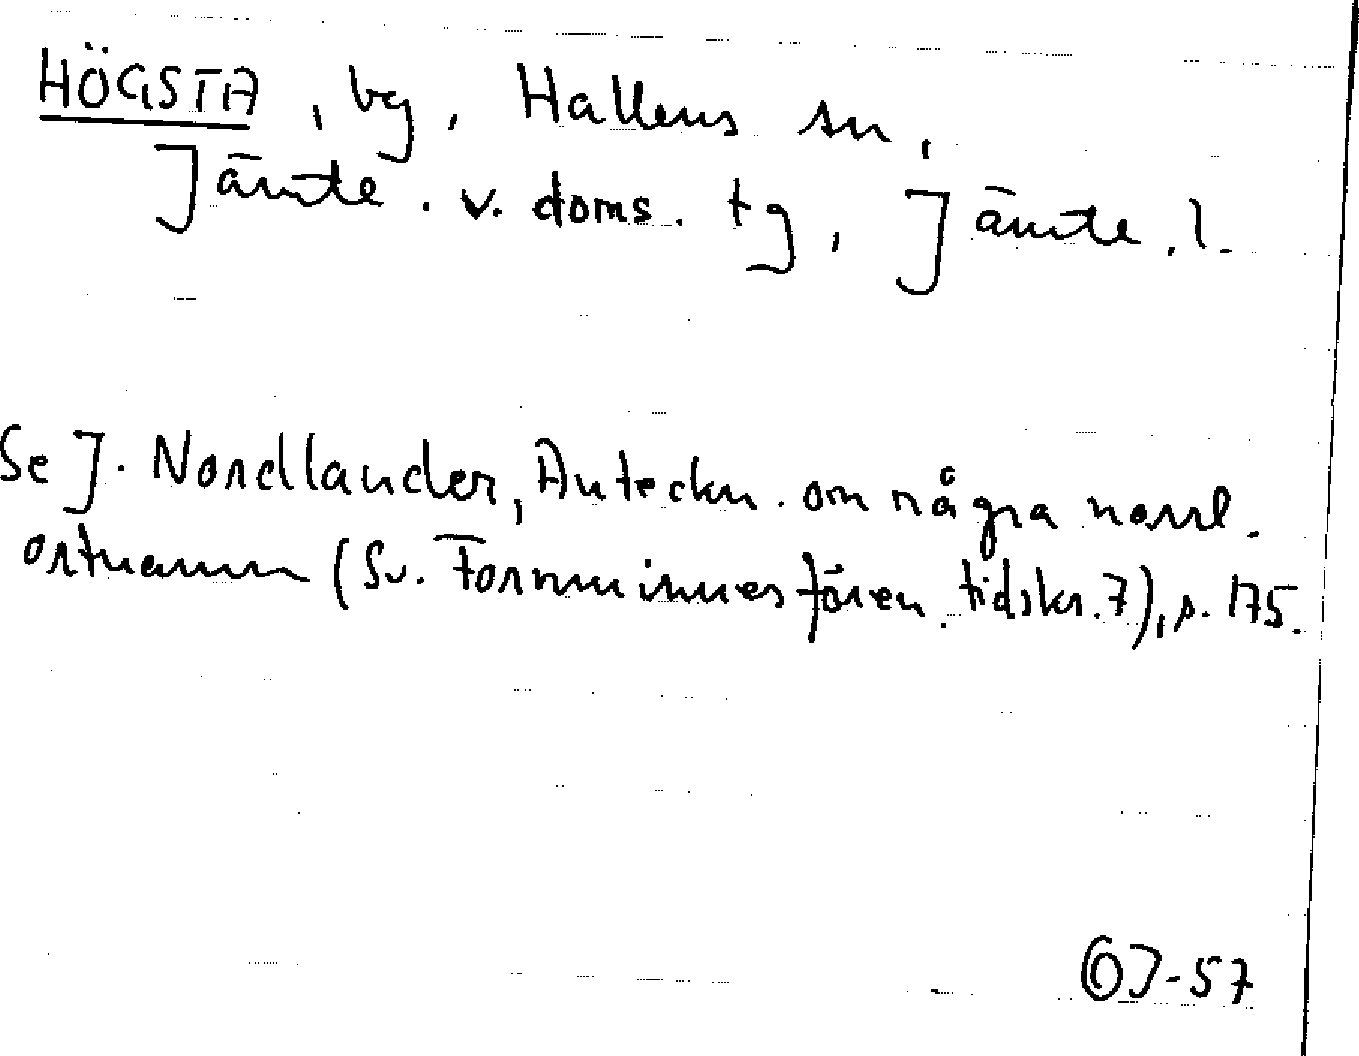 HÖGSTA, by, Hallens sn,
Jämte. v. doms. tg, Jämte. l.
Se J. Nordlander, Anteckn. om några norrl.
ortnamn (Sv. Fornminnesfören. tidskr. 7), s. 175.
OJ-57